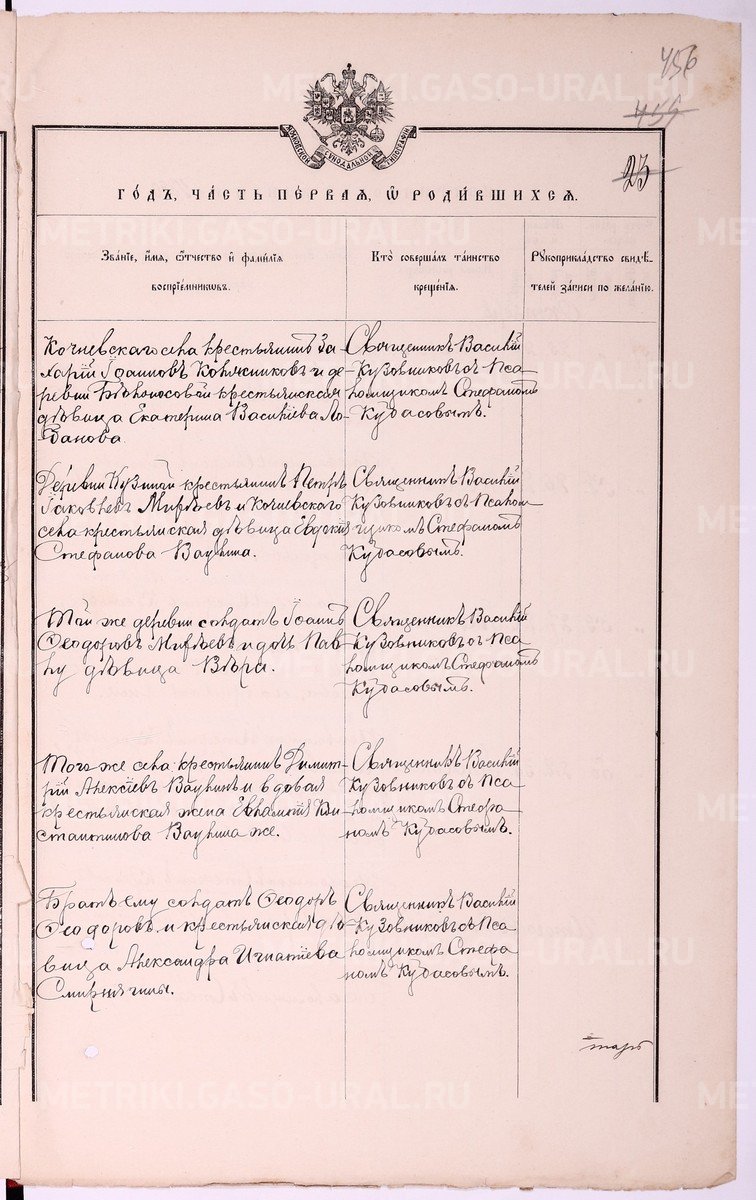 456
455
МОСКОВСКОЙ СѴНОДАЛЬНОЙ ТИПОГРАФІИ
23
ГОДЪ, ЧАСТЬ ПЕРВАЯ, Ѡ РОДИВШИХСЯ.
Званіе, имя, ѻтчество и фамилія воспріемниковъ.
Кто совершалъ таинство крещенія.
Рукоприкладство свидѣтелей записи по желанію.
Кочневскаго села крестьянинъ За-
харій Іоанновъ Конясниковъ и де-
ревни Бѣлоносовой крестьянская
дѣвица Екатерина Василіева Ло-
банова.
Священникъ Василій
Кузовниковъ съ Пса-
ломщикомъ Стефаномъ
Кудасовымъ.
Деревни Кузиной крестьянинъ Петръ
Іаковлевъ Мирѣевъ и Кочневскаго
села крестьянская дѣвица Евдокия
Стефанова Ваулина.
Священникъ Василій
Кузовниковъ съ Псалом-
щикомъ Стефаномъ
Кудасовымъ.
Той же деревни солдатъ Іоаннъ
Ѳеодоровъ Мирѣевъ и дочь Пав-
лу дѣвица Вѣра.
Священникъ Василій
Кузовниковъ съ Пса-
ломщикомъ Стефаномъ
Кудасовымъ.
Того же села крестьянинъ Димит-
рій Алексіевъ Ваулинъ и вдовая
крестьянская жена Евлампія Кон-
стантинова Ваулина же.
Священникъ Василій
Кузовниковъ съ Пса-
ломщикомъ Стефа-
номъ Кудасовымъ.
Братъ ему солдатъ Ѳеодоръ
Ѳеодоровъ и крестьянская дѣ-
вица Александра Игнатіева
Смирнягины.
Священникъ Василій
Кузовниковъ съ Пса-
ломщикомъ Стефа-
номъ Кудасовымъ.
METRIKI.GASO-URAL.RU